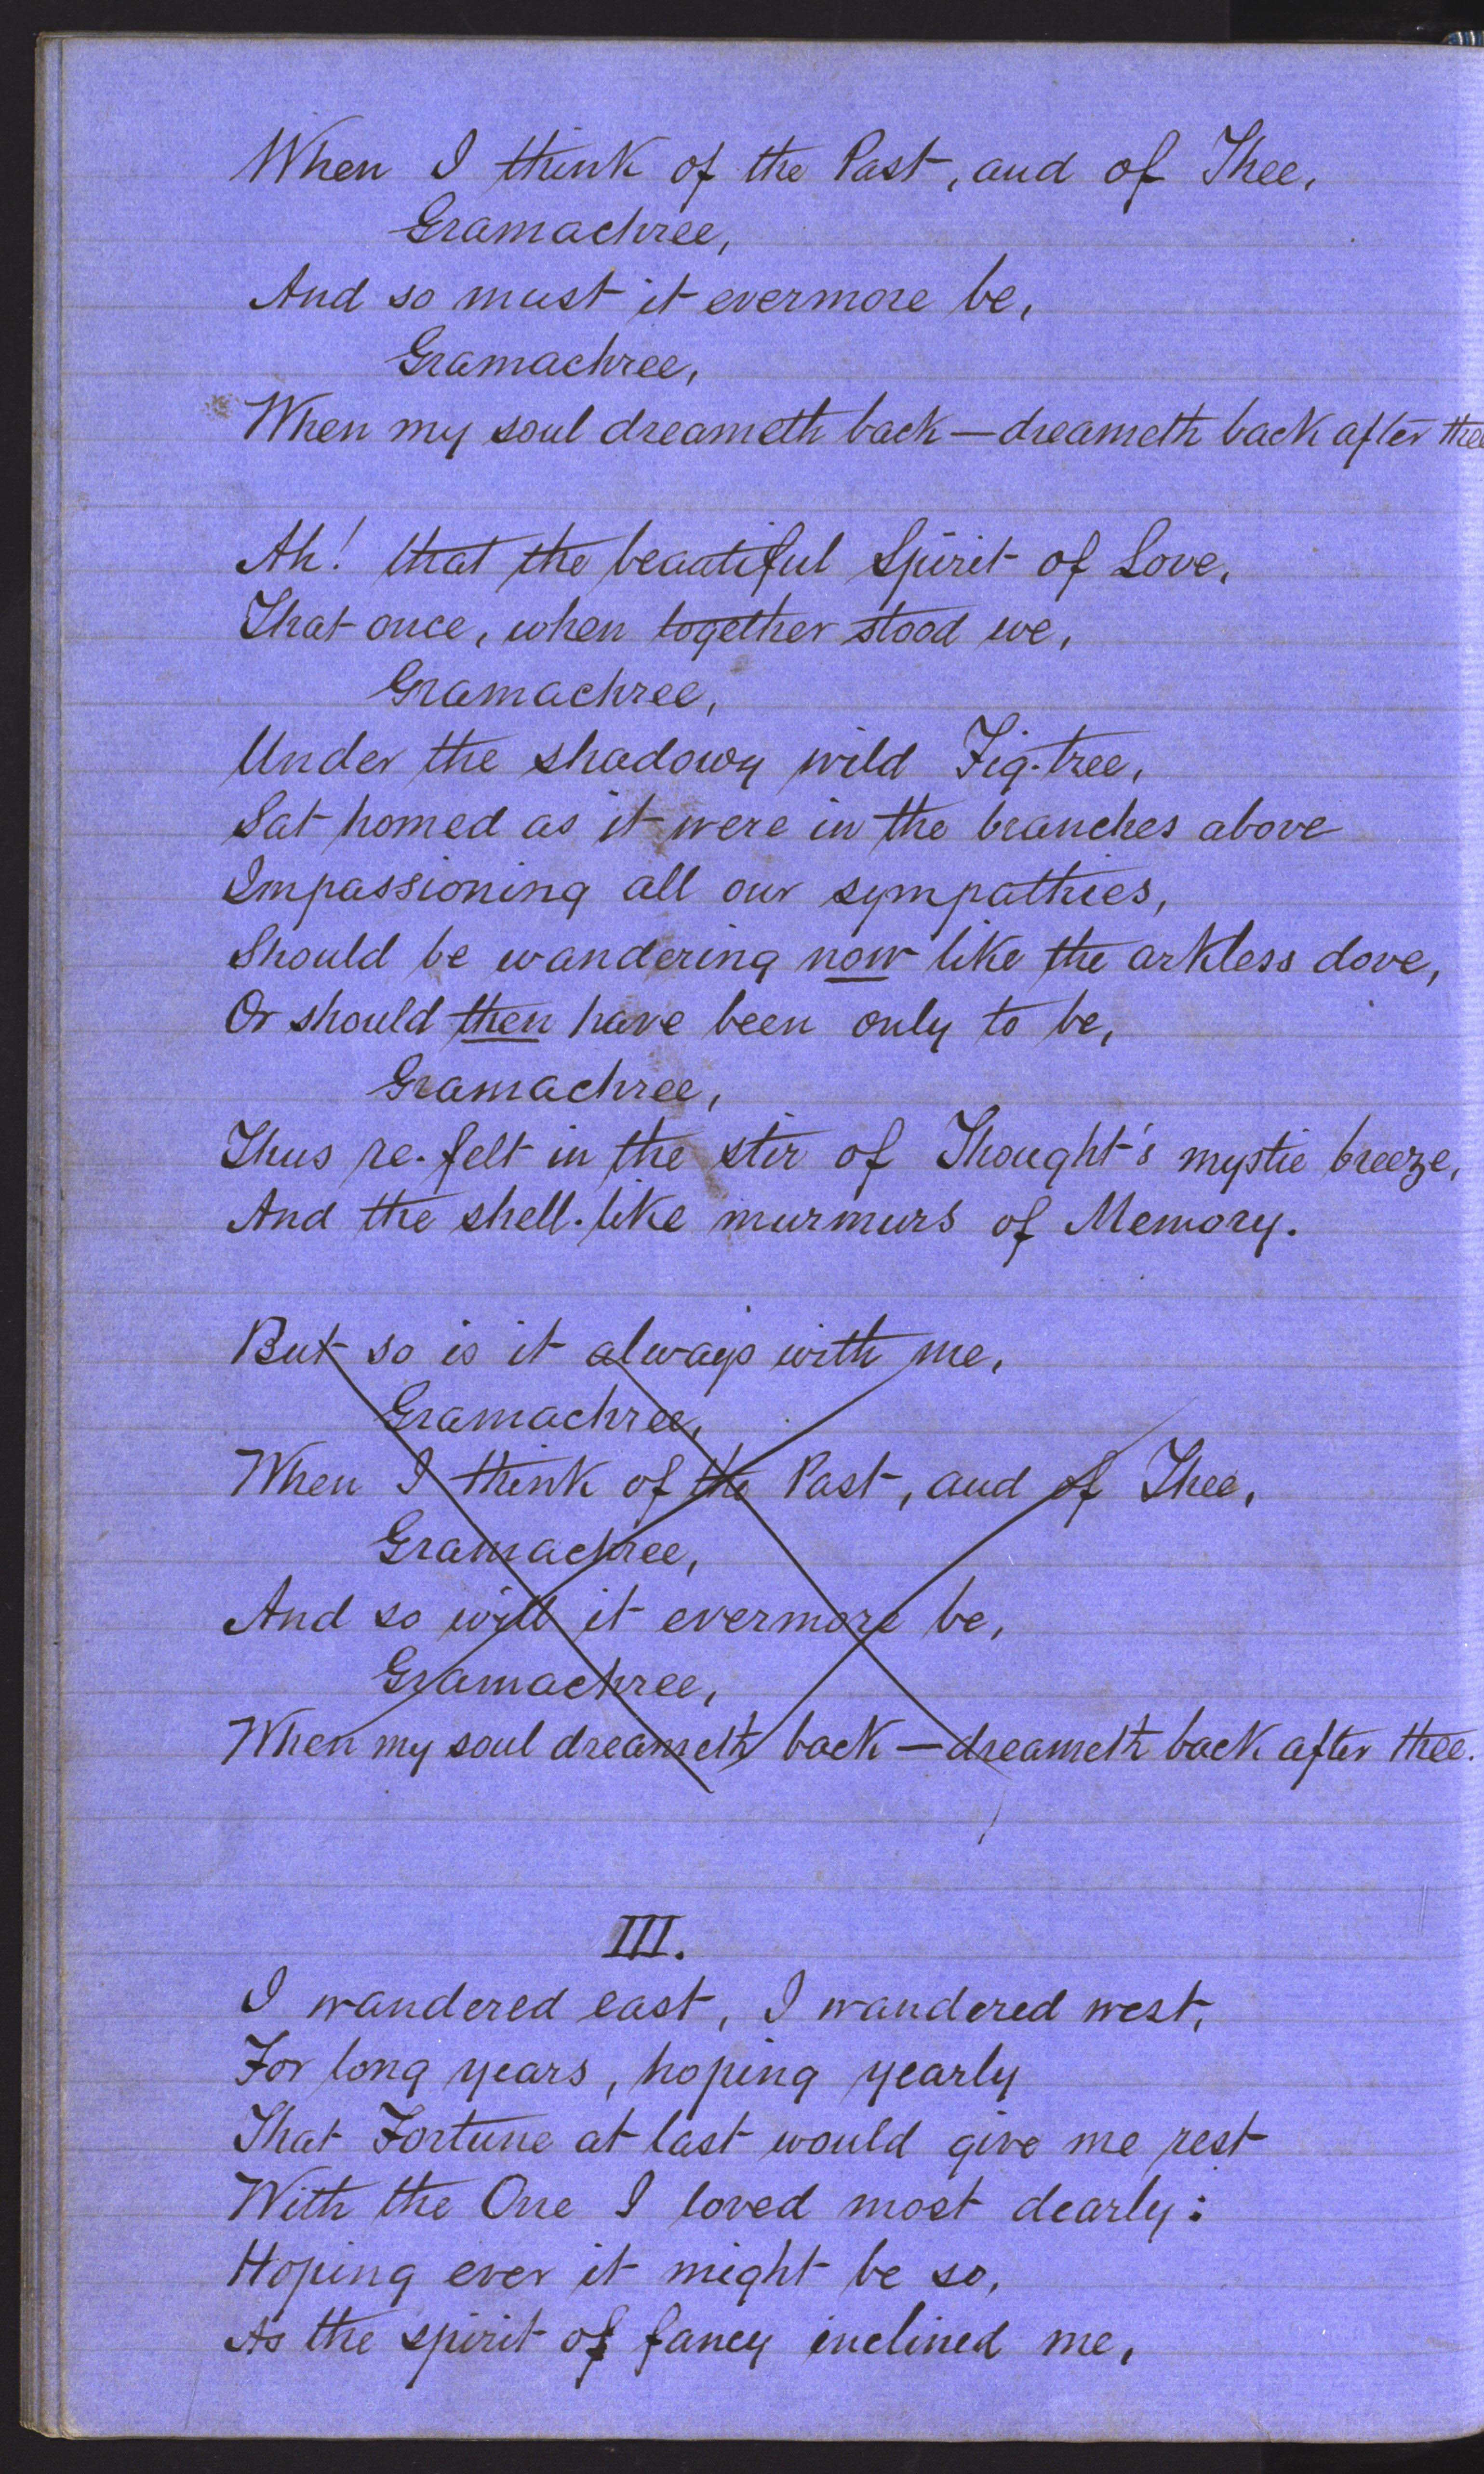 When I think of the Past, and of Thee,
Gramachree,
And so must it evermore be,
Gramachree,
When my soul dreameth back—dreameth back after thee
Ah! that the beautiful Spirit of Love,
That once, when together stood we,
Gramachree,
Under the shadowy wild Fig-tree,
Sat homed as it were in the branches above
Impassioning all our sympathies,
Should be wandering now like the arkless dove,
Or should then have been only to be,
Gramachree,
Thus re-felt in the stir of Thought's mystic breeze,
And the shell-like murmurs of Memory.
But so is it always with me,
Gramachree,
When I think of the Past, and of Thee,
Gramachree,
And so will it evermore be,
Gramachree,
When my soul dreameth back—dreameth back after thee.
III.
I wandered east, I wandered west,
For long years, hoping yearly
That Fortune at last would give me rest
With the One I loved most dearly:
Hoping ever it might be so,
As the spirit of fancy inclined me,